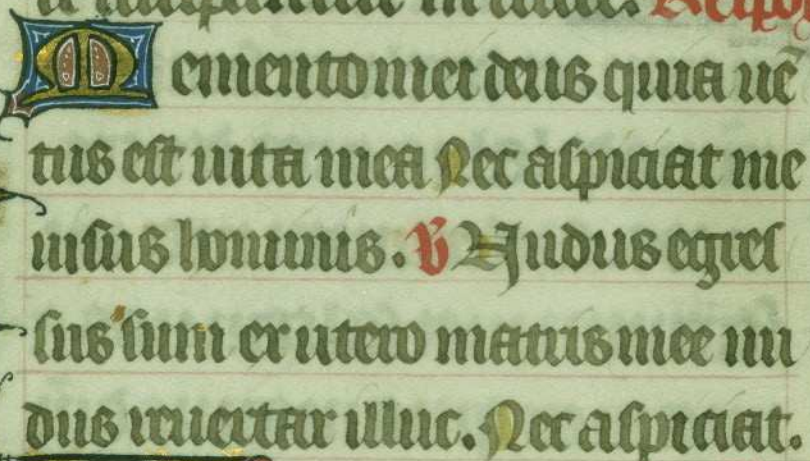 Memento mei deus quia uē
tus est uita mea Nec aspiciat me
uisus hominis. V Nudus egres
sus sum ex utero matris mee nu
dus reuertar illuc. Nec aspiciat.